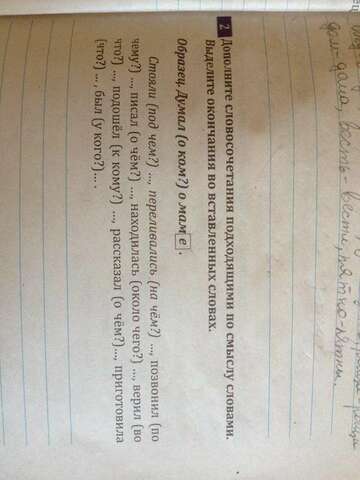 дом - дома, весть - вести, пятно - пятна.
2 Дополните словосочетания подходящими по смыслу словами.
Выделите окончания во вставленных словах.
Образец. Думал (о ком?) о маме.
Стояли (под чем?) ..., переливались (на чём?) ..., позвонил (по
чему?) ..., писал (о чём?) ..., находилась (около чего?) ..., верил (во
что?) ..., подошёл (к кому?) ..., рассказал (о чём?)..., приготовила
(что?) ... , был (у кого?)... .